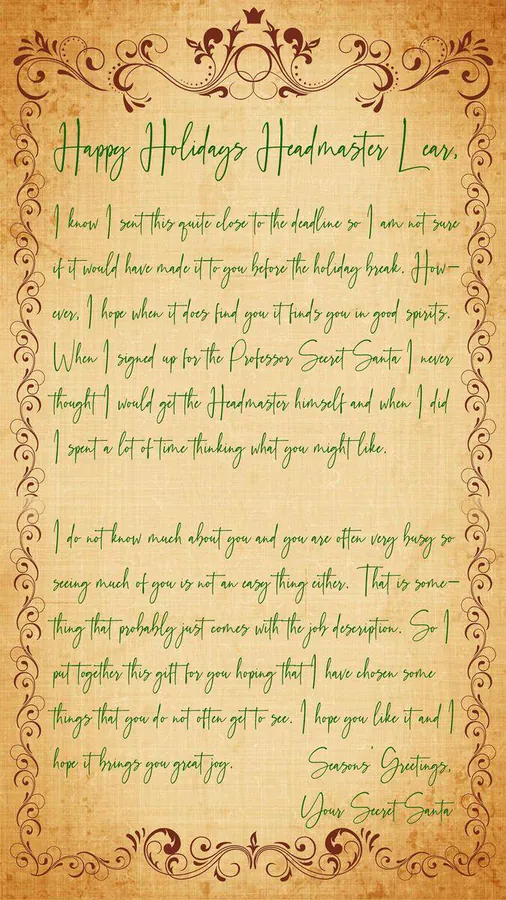 Happy Holidays Headmaster Lear,
I know I sent this quite close to the deadline so I am not sure
if it would have made it to you before the holiday break. How-
ever, I hope when it does find you it finds you in good spirits.
When I signed up for the Professor Secret Santa I never
thought I would get the Headmaster himself and when I did
I spent a lot of time thinking what you might like.
I do not know much about you and you are often very busy so
seeing much of you is not an easy thing either. That is some-
thing that probably just comes with the job description. So I
put together this gift for you hoping that I have chosen some
things that you do not often get to see. I hope you like it and I
hope it brings you great joy.
Seasons' Greetings,
Your Secret Santa